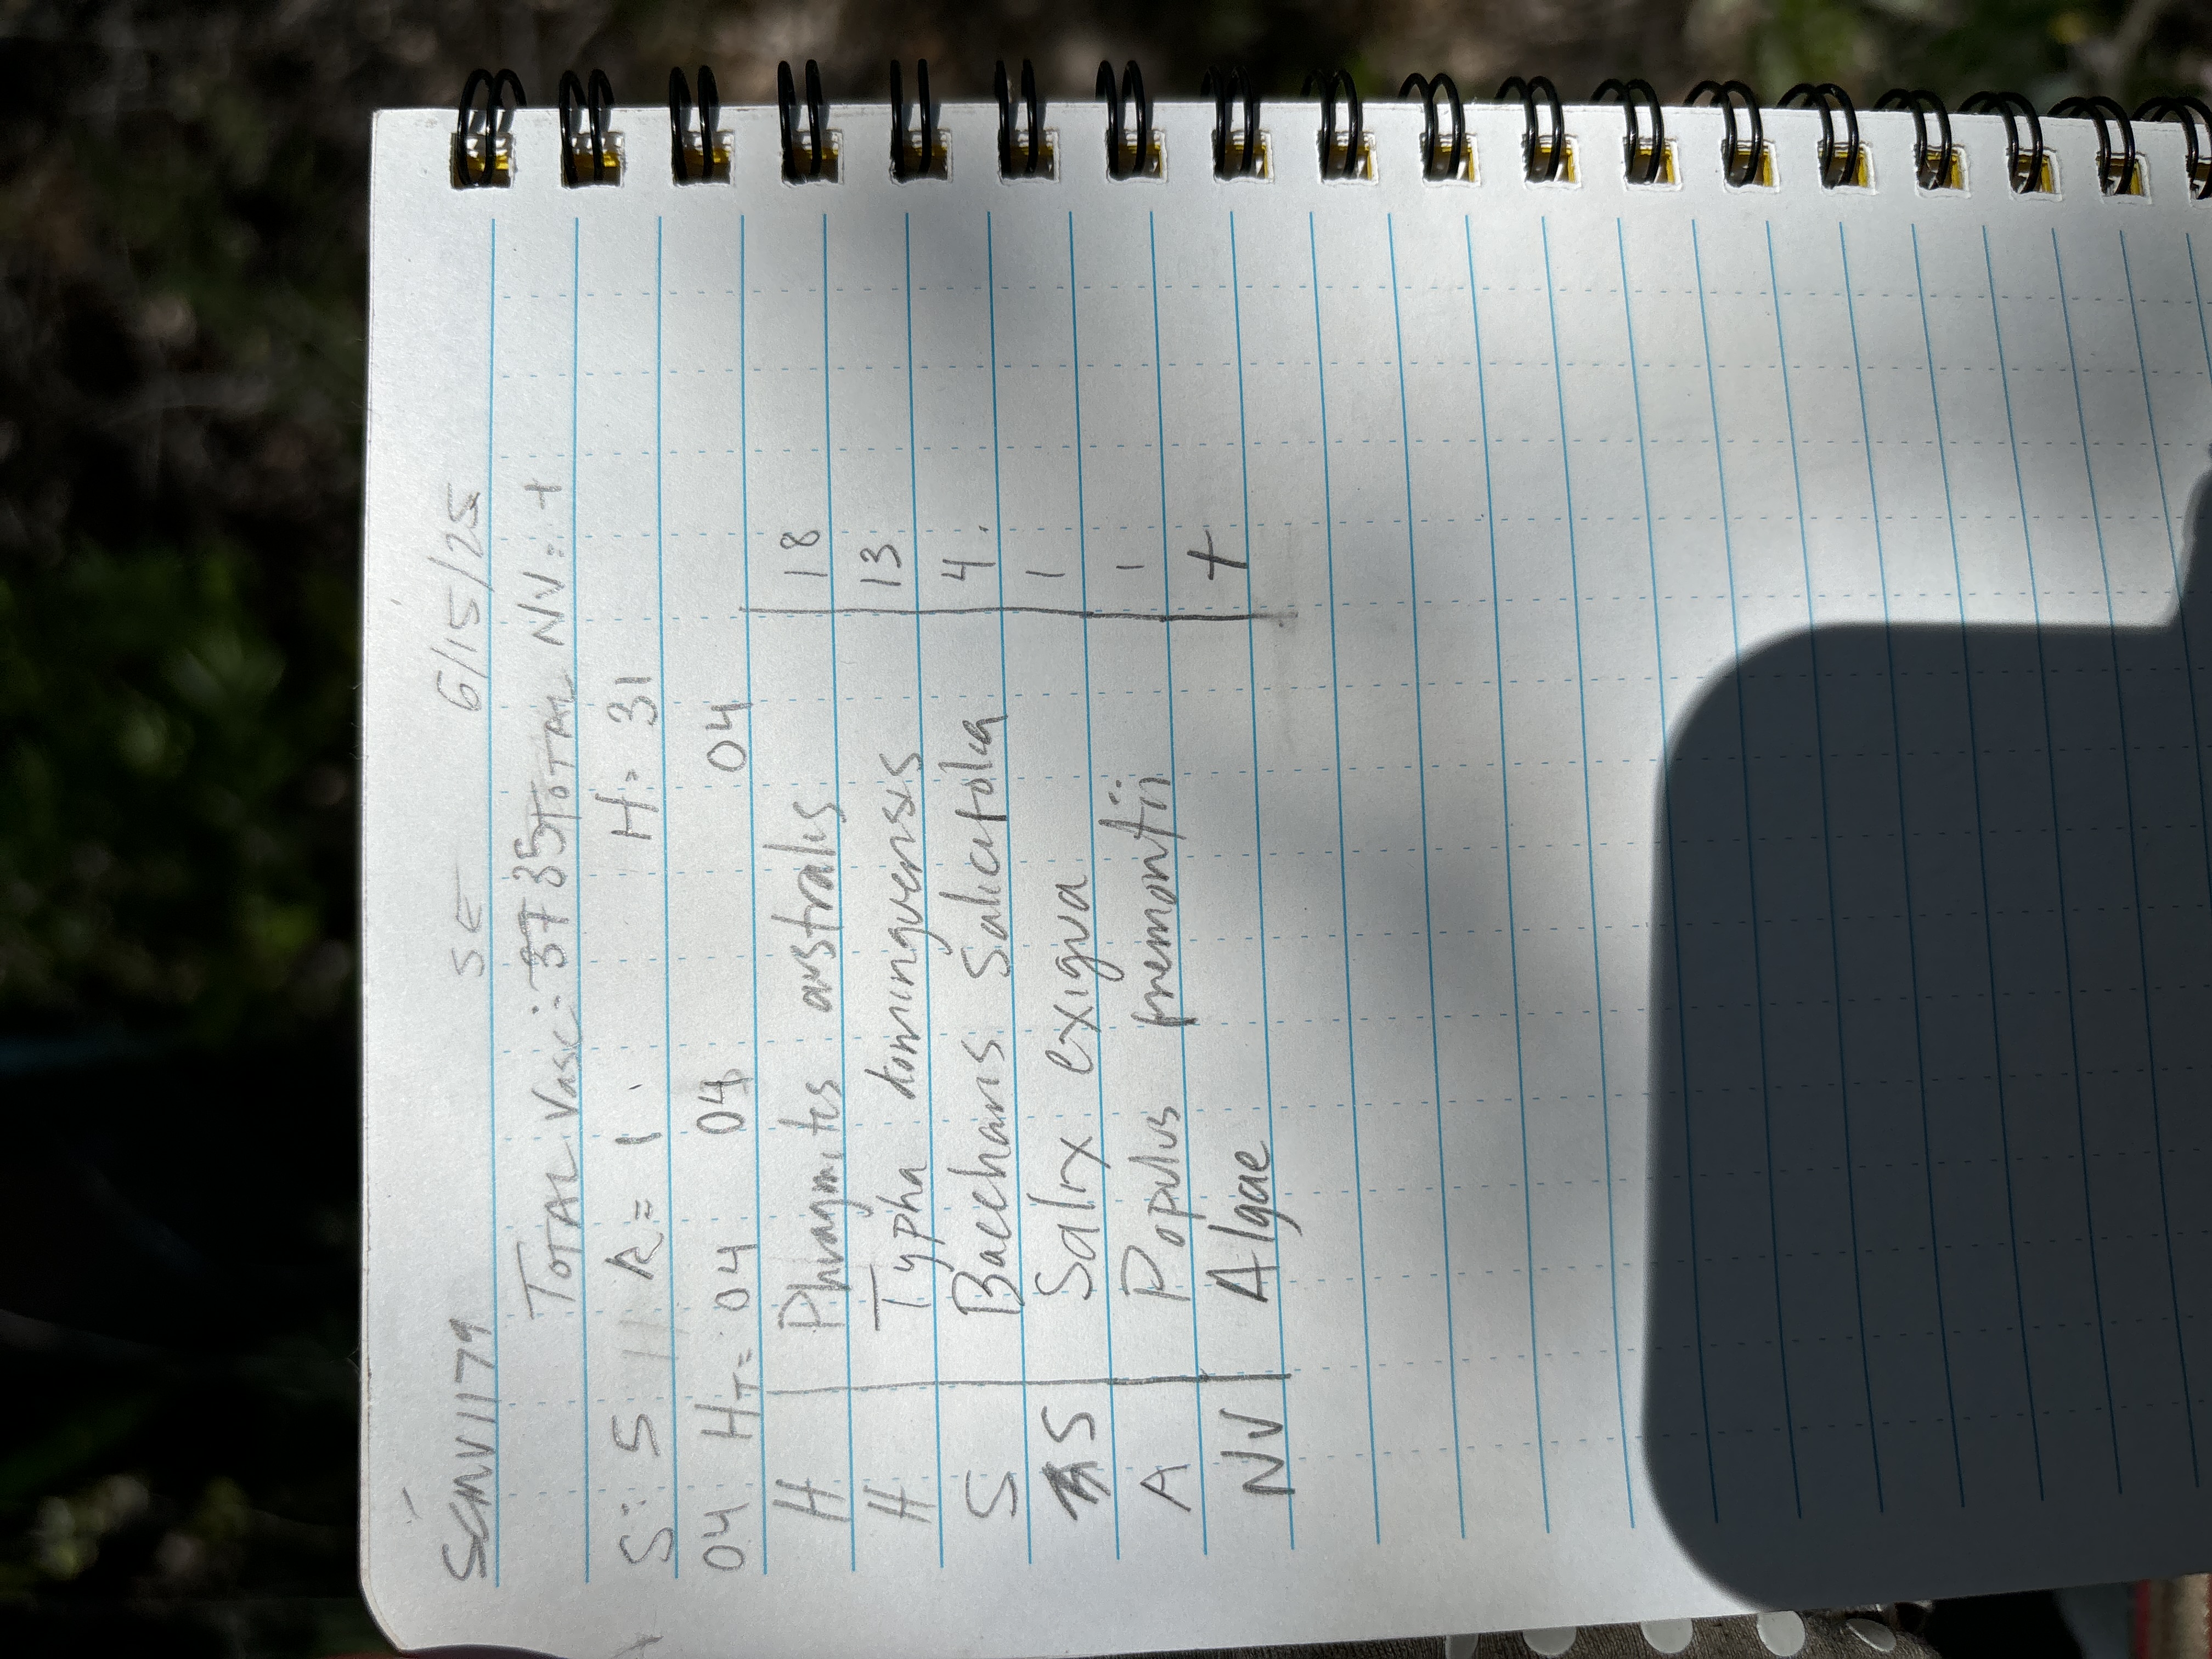 SCMV1179 SE 6/15/25
TOTAL Vasc: 37 35 TOTAL NV: +
S: 5 R= 1 H: 31
04 HT= 04 04 04
H Phragmites australis 18
H Typha domingensis 13
S Baccharis Salicifolia 4
S Salix exigua 1
A Populus fremontii 1
NV Algae +